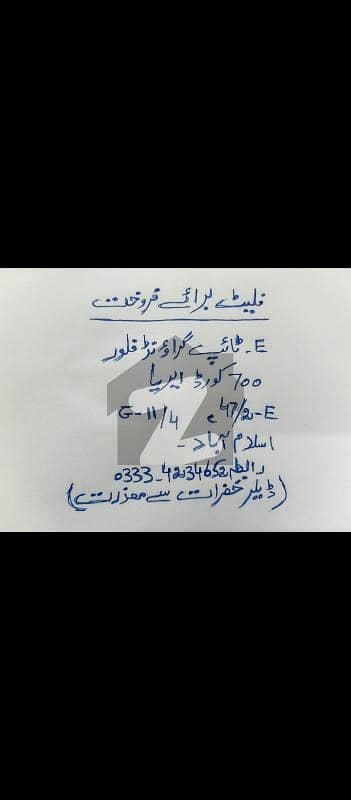 فلیٹ برائے فروخت
E-ٹائپ گراؤنڈ فلور
700 کورڈ ایریا
47/2-E، G-11/4
اسلام آباد-
رابطہ
(ڈیلر حضرات سے معذرت)